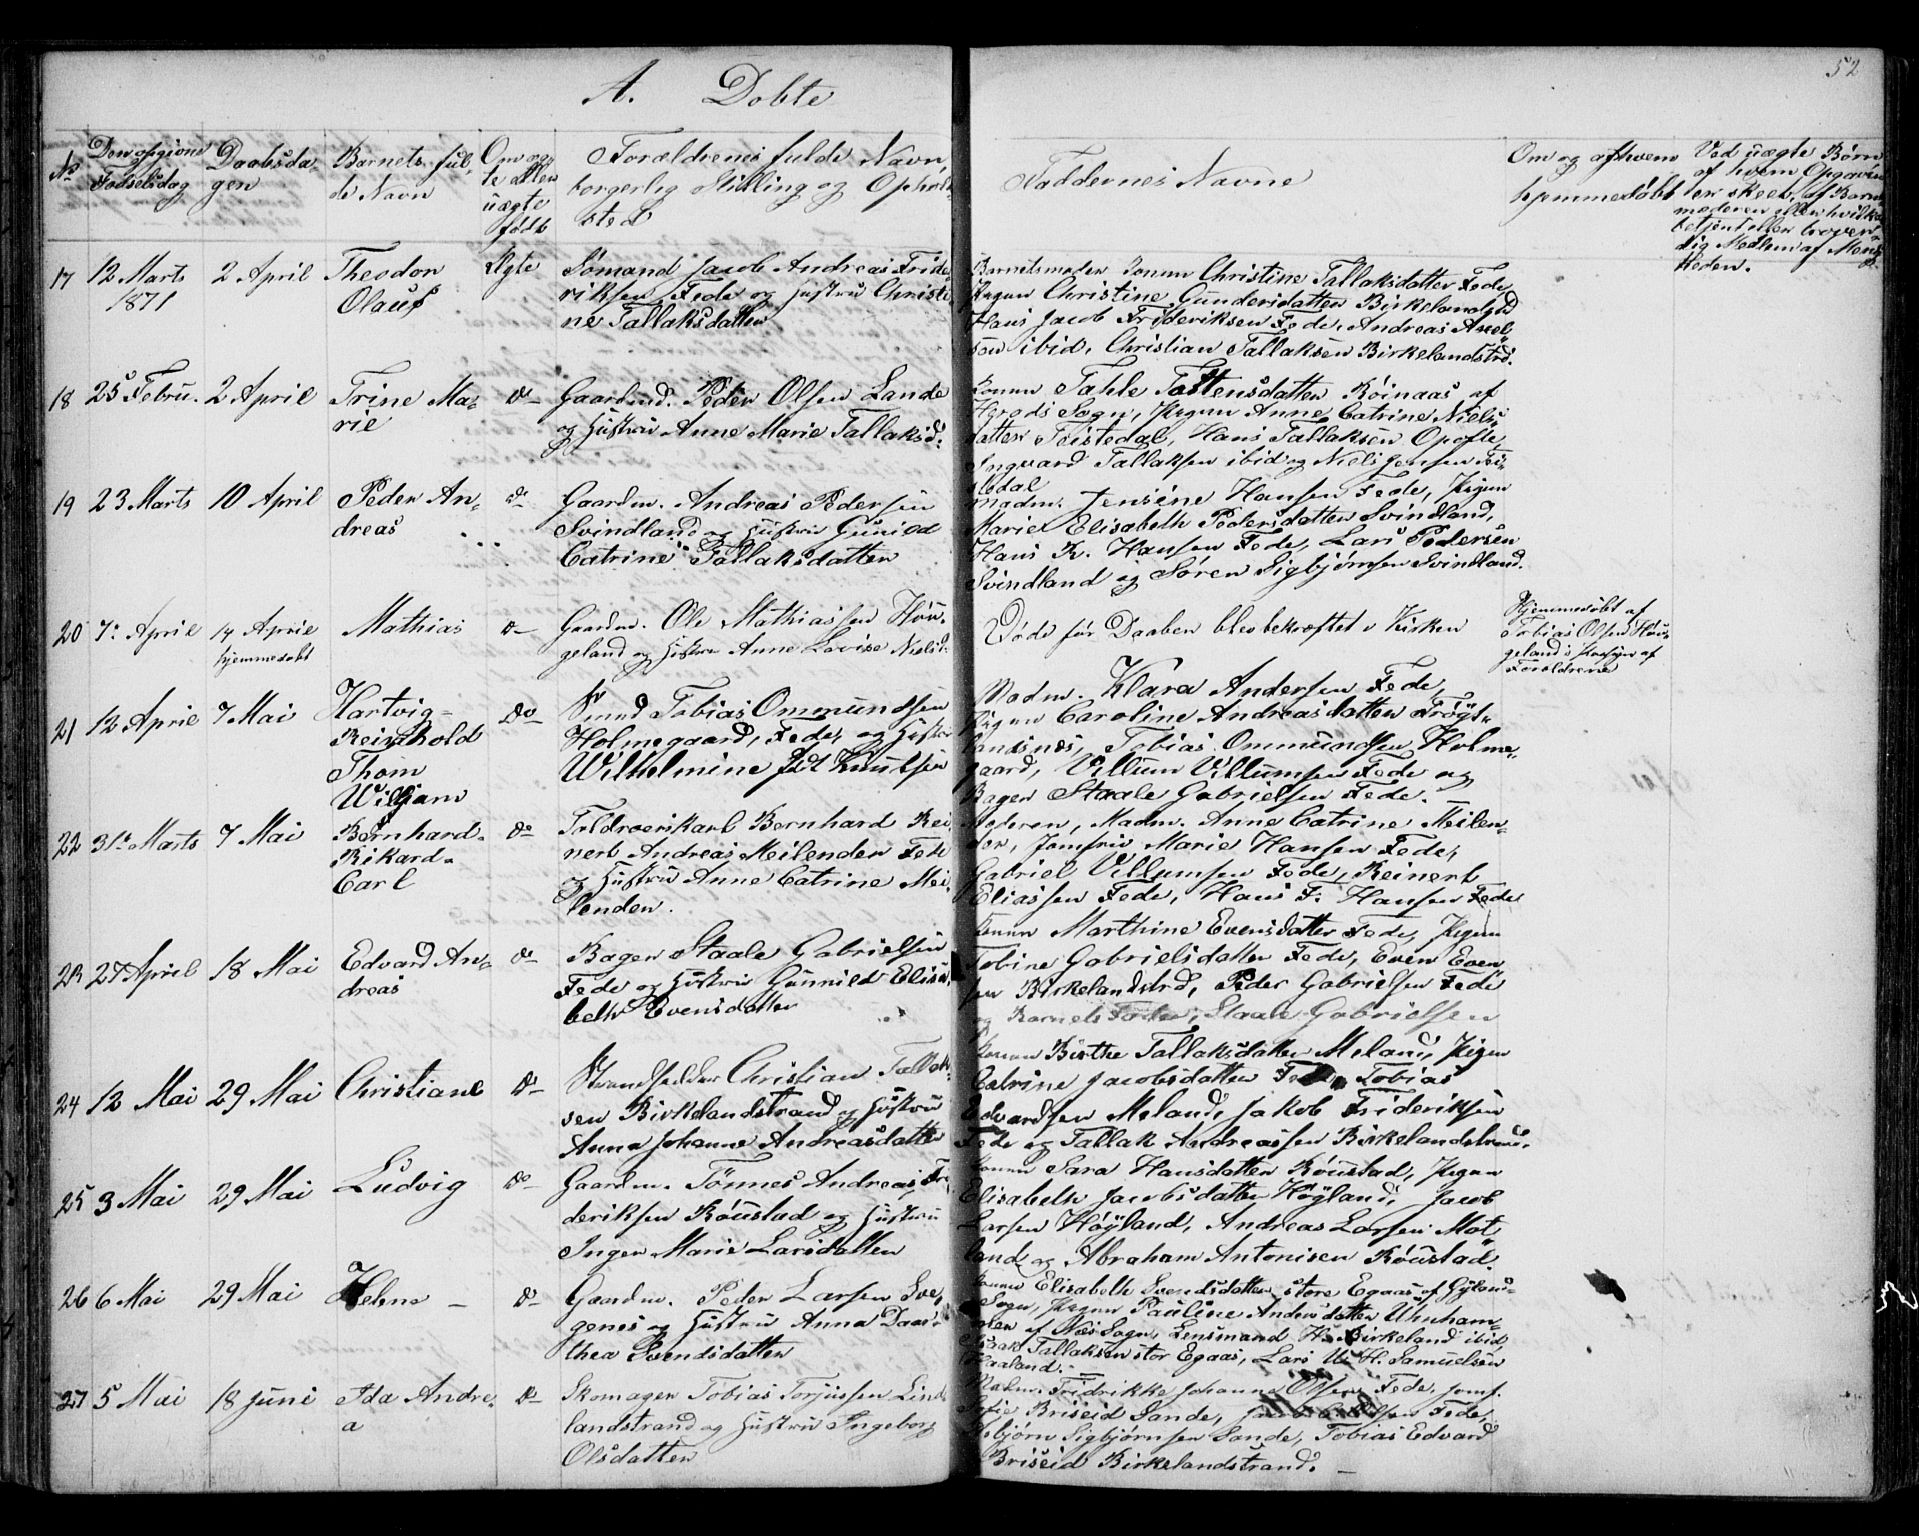 52
A. Døbte
No
Den opgivne
Fødselsdag
Daabsda-
gen
Barnets ful-
de Navn
Om æg-
te eller
uægte
født
Forældrenes fulde Navn,
borgerlig Stilling og Opholds
sted
Faddernes Navne
Om og af hvem
hjemmedøbt
Ved uægte Børn
af hvem Opgaven
er skeet, af Barne
moderen eller hvilke
betjent eller troven-
dig Medlem af Menig
heden.
17 12 Marts 2 April Theodor Ægte Sømand Jacob Andreas Fride-
1871 Olaus riksen Fede og Hustru Christi-
ne Tallaksdatter
Barnetsmoder Konen Christine Tallaksdatter Fede
Pigen Christine Gundersdatter Birkelandstrd
Hans Jacob Frideriksen Fede, Andreas Axel-
sen ibid, Christian Tallaksen Birkelandstrd.
18 25 Febru. 2 April Trine Ma- do Gaardmd. Peder Olsen Lande
rie og Hustru Anne Marie Tallaksd.
Konen Tahle Tostensdatter Røinaas af
Hereds Sogn, Pigen Anne Catrine Niels
datter Teistedal, Hans Tallaksen Opofte,
Ingvard Tallaksen ibid og Niels Jensen Tei-
stedal
19 23 Marts 10 April Peder An- do Gaardm. Andreas Pedersen
dreas Svindland og Hustru Gunild
Catrine Tallaksdatter
Madm. Jensine Hansen Fede, Pigen
Marie Elisabeth Pedersdatter Svindland,
Hans K. Hansen Fede, Lars Pedersen
Svindland og Søren Sigbjørnsen Svindland.
20 7 April 14 April Mathias do Gaardm. Ole Mathiassen Høu-
hjemmedøbt geland og Hustru Anne Lovise Nielsd.
Døde før Daaben blev bekræftet i Kirken
Hjemmedøbt af
Tobias Olsen Høu-
geland i Paasyn af
Forældrene
21 12 April 7 Mai Hartvig do Smed Tobias Ommundsen
Reinhold Holmegaard, Fede, og Hustru
Thom Wilhelmine født Knutsen
William
Madm. Klara Andersen Fede,
Pigen Caroline Andreasdatter Frøyt-
landsnæs, Tobias Ommundsen Holme-
gaard, Villum Villumsen Fede og
Bager Staale Gabrielsen Fede.
22 31 Marts 7 Mai Bernhard do Toldroerskarl Bernhard Rei-
Rikard nert Andreas Meilender Fede
Carl og Hustru Anne Catrine Mei-
lender.
Moderen, Madm. Anne Catrine Meilen-
der, Jomfru Marie Hansen Fede,
Gabriel Villumsen Fede, Reinert
Eliassen Fede, Hans F. Hansen Fede
23 27 April 18 Mai Edvard An- do Bager Staale Gabrielsen
dreas Fede og Hustru Gunnild Elisa-
beth Evensdatter
Konen Marthine Evensdatter Fede, Pigen
Tobine Gabrielsdatter Fede, Even Even
sen Birkelandstrd, Peder Gabrielsen Fede
og Barnets Fader, Staale Gabrielsen
24 12 Mai 29 Mai Christiane do Strandsidder Christian Tallak-
sen Birkelandstrand og Hustru
Anna Johanne Andreasdatter
Konen Birthe Tallaksdatter Meland, Pigen
Catrine Jacobsdatter Fede, Tobias
Edvardsen Meland, Jakob Frideriksen
Fede og Tallak Andreassen Birkelandstrand.
25 3 Mai 29 Mai Ludvig do Gaardm. Tønnes Andreas Fri-
deriksen Røustad og Hustru
Inger Marie Larsdatter
Konen Sara Hansdatter Røustad, Pigen
Elisabeth Jacobsdatter Høyland, Jacob
Larsen Høyland, Andreas Larsen Mot-
land og Abraham Antonisen Røustad.
26 6 Mai 29 Mai Helene do Gaardm. Peder Larsen Sve-
genes og Hustru Anna Doro-
thea Svendsdatter
Konen Elisabeth Svendsdatter store Egaas af Gyland
Sogn, Pigen Pauline Andersdatter Uhnham-
mer af Næs Sogn, Lensmand H. Birkeland ibid,
Isaak Tallaksen stor Egaas, Lars H. Samuelsen
Haaland.
27 5 Mai 18 Juni Ada Andre- do Skomager Tobias Torjussen Lind-
a landstrand og Hustru Ingeborg
Olsdatter
Madm. Fridrikke Johanne Olsen Fede, Jomf.
Briseid Sande, Fede,
Sigbjørnsen Sande, Tobias Edvard
Briseid Birkelandstrand.